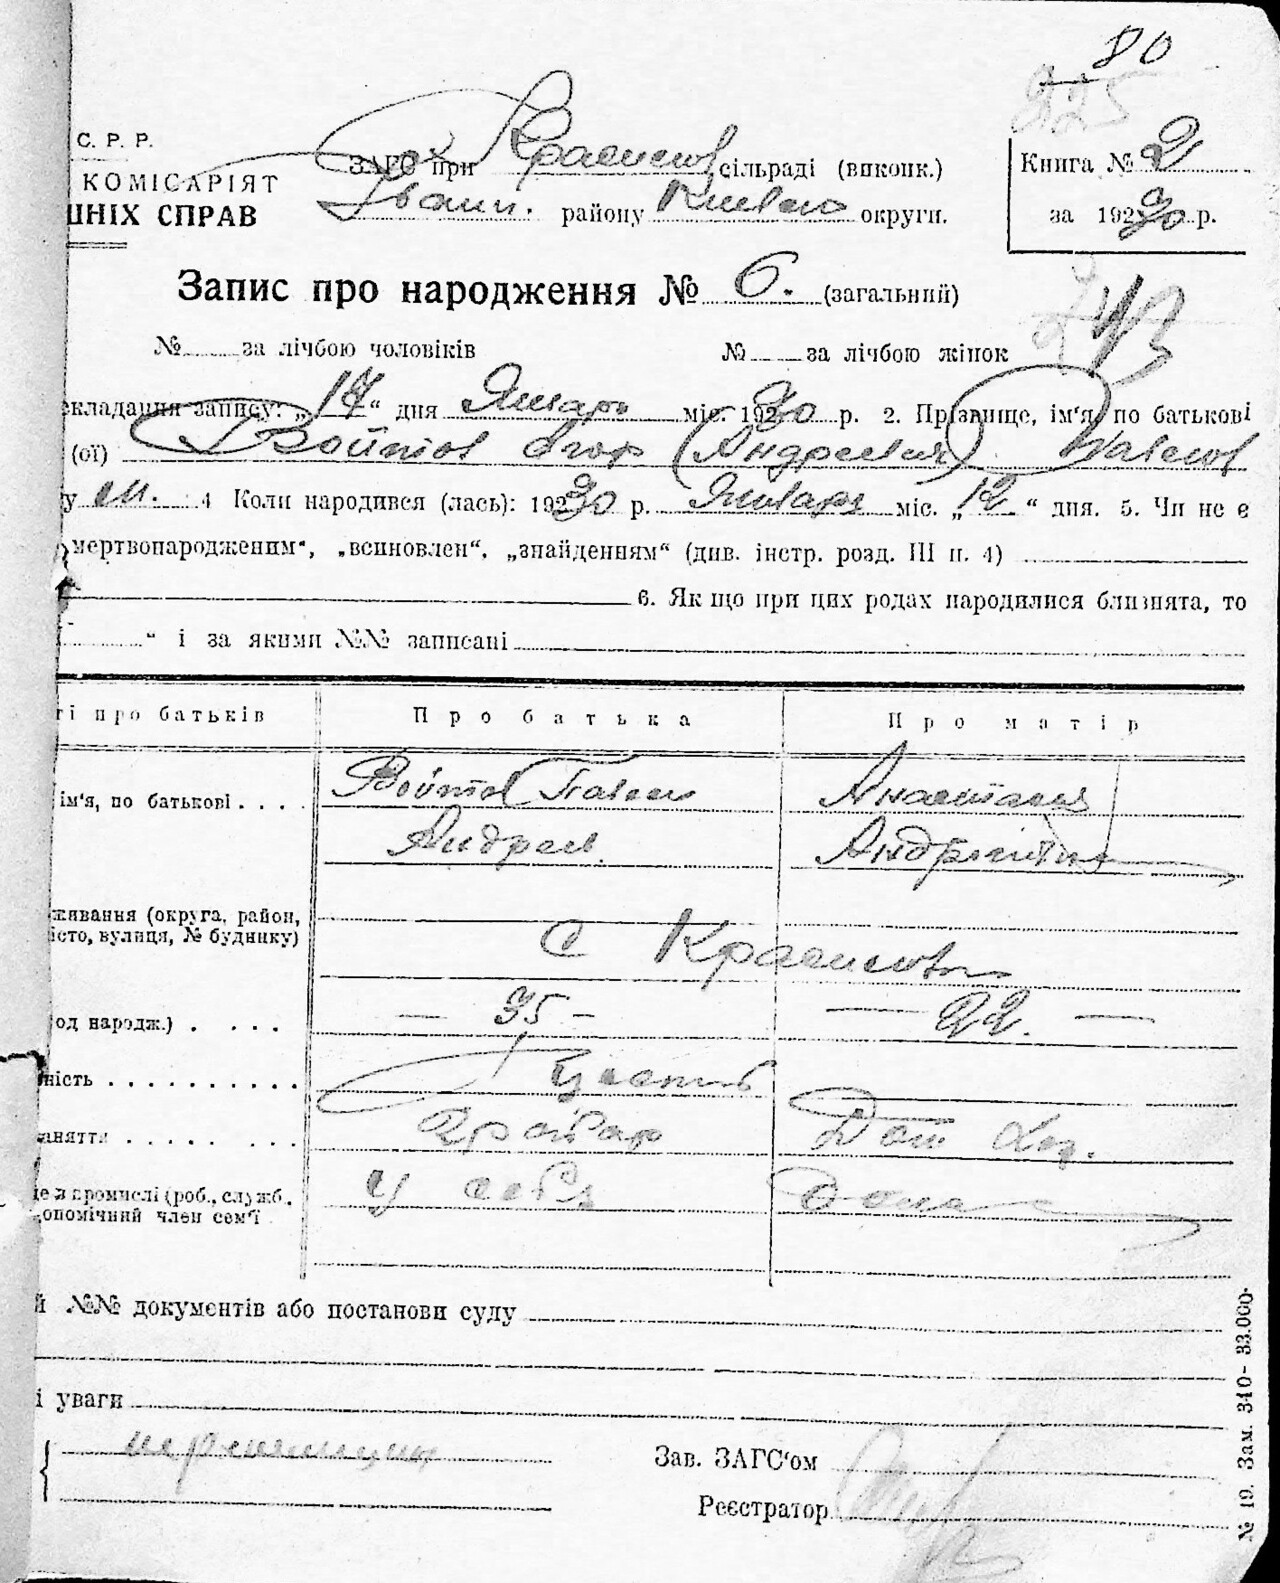 80
225
С. Р. Р.
КОМІСАРІЯТ
ШНІХ СПРАВ
ЗАГС при сільраді (виконк.)
Іванк. району Київськ округи.
Книга № 2
за 1930 р.
Запис про народження № 6. (загальний)
243
№ за лічбою чоловіків № за лічбою жінок
складання запису: „17“ дня Январь міс. 1930 р. 2. Прізвище, ім'я, по батькові
(ої) Войтов (Андреевич)
у м. 4 Коли народився (лась): 1930 р. Январь міс. „12“ дня. 5. Чи не є
мертвонародженим“, „всиновлен“, „знайденням“ (див. інстр. розд. III п. 4)
6. Як що при цих родах народилися близнята, то
“ і за якими №№ записані
ті про батьків Про батька Про матір
ім'я, по батькові . . . . Войтов Анастасия
Андреев.
живання (округа, район,
істо, вулиця, № будинку)
с
од народж.) . . . . — 35 — — 22. —
ність . . . . . . . . . .
аняття . . . . . . . . Дом Хоз.
це в промислі (роб., служб.
опомічний член сем'ї У себя Дома
й №№ документів або постанови суду
і уваги
Зав. ЗАГС'ом
Реєстратор
№ 19. Зам. 340 - 33.000-